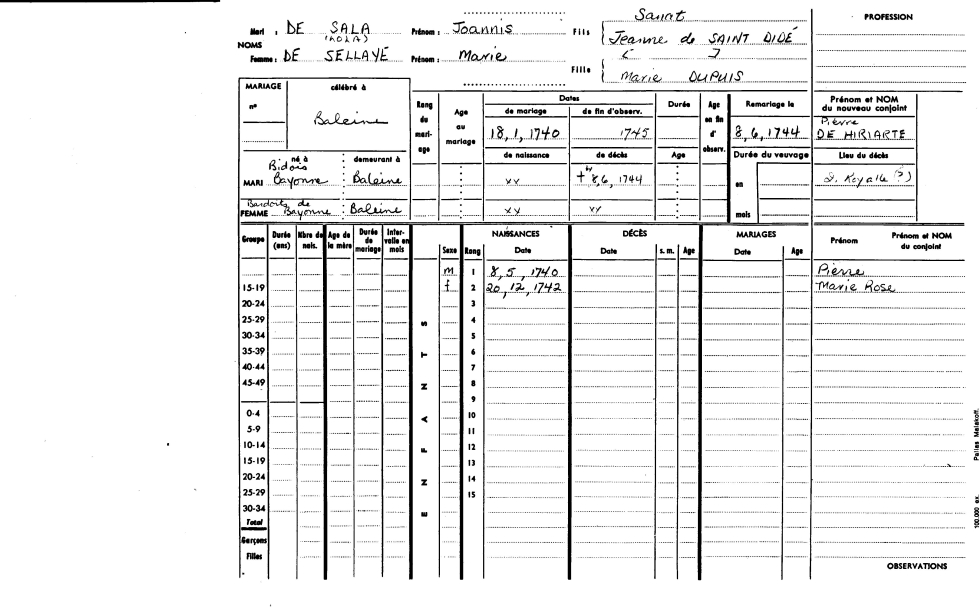 Sanrt
PROFESSION
Mari : DE SALA Prénom : Joannis Fils { Jeanne de SAINT DIDÉ
NOMS
Femme : DE SELLAYÉ Prénom : Marie
Fille { Marie DUPUIS
MARIAGE célébré à
n°
Baleine
Rang du mariage
Age au mariage
Dates
de mariage de fin d'observ.
18, 1, 1740 1745
de naissance de décès
Durée
Age
Age en fin d' observ.
Remariage le
8, 6, 1744
Durée du veuvage
en
mois
Prénom et NOM du nouveau conjoint
Pierre
DE HIRIARTE
Lieu du décès
né à demeurant à
Bidois
MARI Bayonne Baleine xx + 8,6, 1744 I. Royale (?)
de
FEMME Bayonne Baleine xx xx
Groupe Durée (ans) Nbre de nais. Age de la mère Durée de mariage Intervalle en mois
ENFANTS
Sexe Rang NAISSANCES Date DÉCÈS Date s. m. Age MARIAGES Date Age Prénom Prénom et NOM du conjoint
m 1 8, 5, 1740 Pierre
15-19 f 2 20, 12, 1742 Marie Rose
20-24 3
25-29 4
30-34 5
35-39 6
40-44 7
45-49 8
9
0-4 10
5-9 11
10-14 12
15-19 13
20-24 14
25-29 15
30-34
Total
Garçons
Filles
OBSERVATIONS
100.000 ex. Pallas Malakoff.